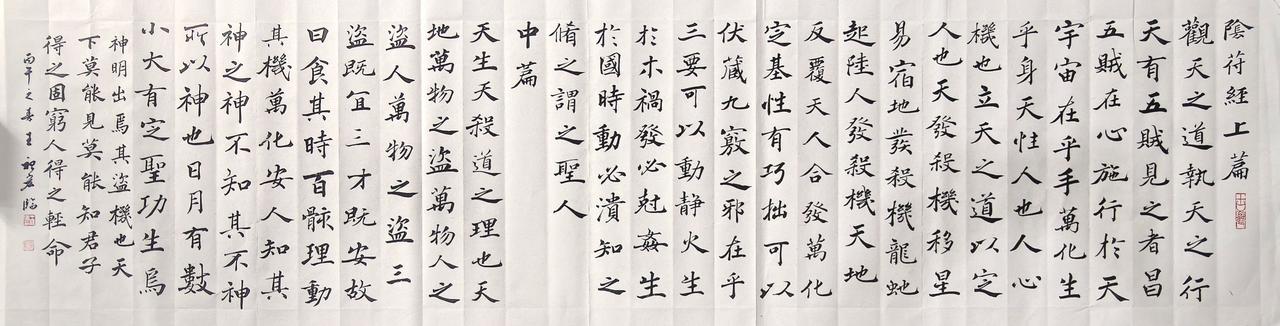 陰符經上篇
觀天之道執天之行
天有五賊見之者昌
五賊在心施行於天
宇宙在乎手萬化生
乎身天性人也人心
機也立天之道以定
人也天發殺機移星
易宿地發殺機龍虵
起陸人發殺機天地
反覆天人合發萬化
定基性有巧拙可以
伏藏九竅之邪在乎
三要可以動静火生
於木禍發必尅姦生
於國時動必潰知之
脩之謂之聖人
中篇
天生天殺道之理也天
地萬物之盜萬物人之
盜人萬物之盜三
盜既宜三才既安故
曰食其時百骸理動
其機萬化安人知其
神之神不知其不神
所以神也日月有數
小大有定聖功生焉
神明出焉其盜機也天
下莫能見莫能知君子
得之固窮人得之輕命
丙午之春王臨